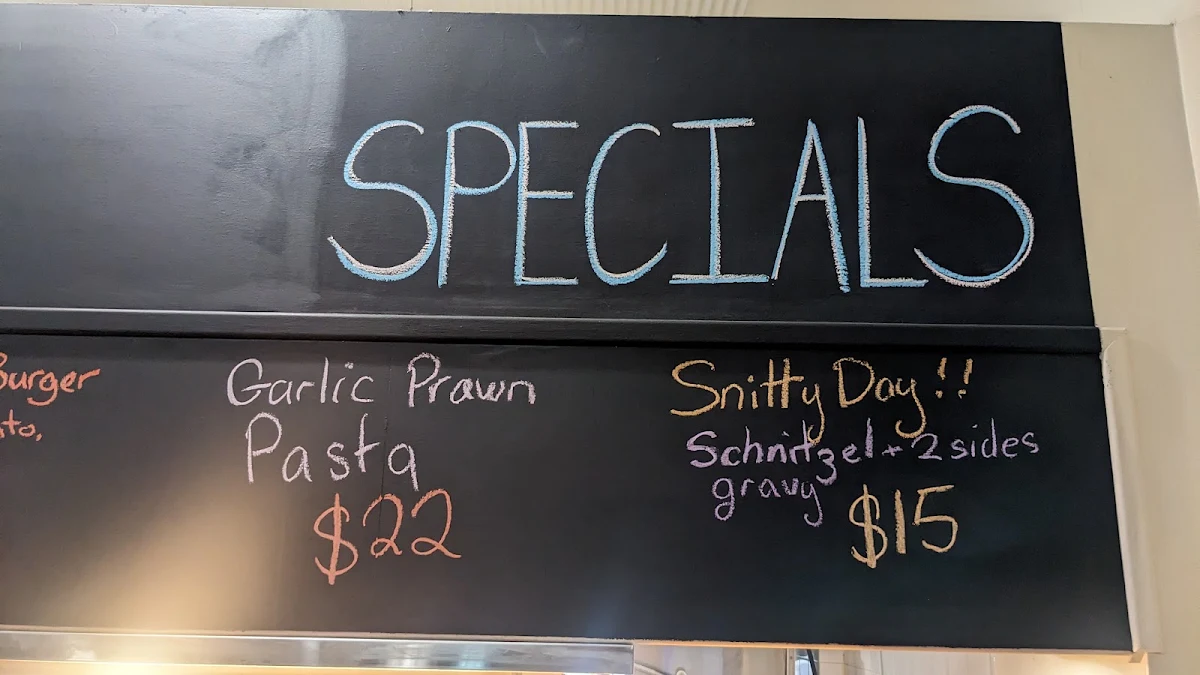 SPECIALS
Burger
Garlic Prawn
Pasta
$22
Snitty Day!!
Schnitzel + 2 sides
gravy
$15